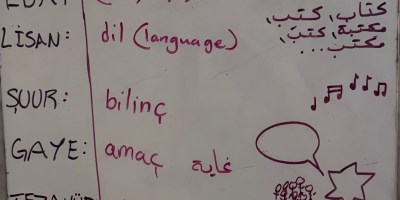 LİSAN: dil (language)
كتاب، كتب،
مكتبة، كتب،
مكتب...
ŞUUR: bilinç
GAYE: amaç غاية